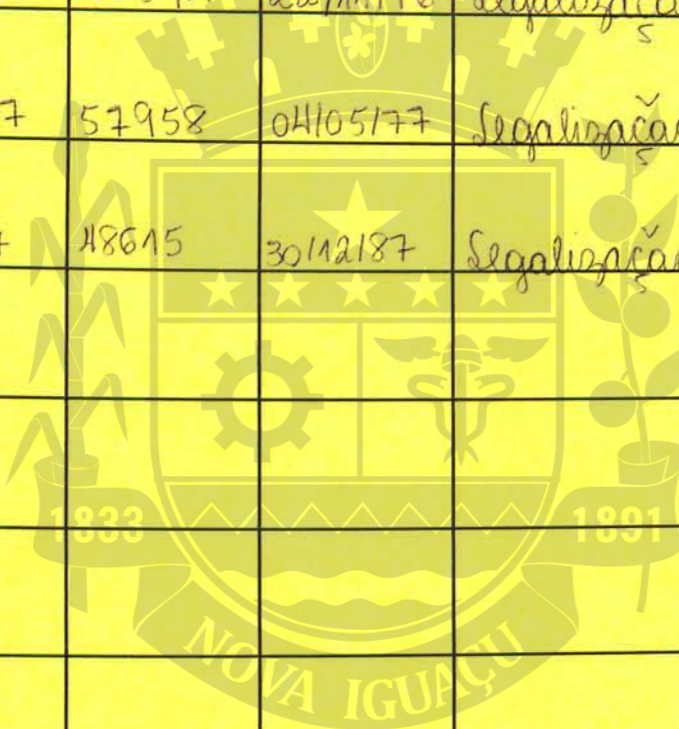 7 57958 04/05/77 Legalizaçã
7 48615 30/12/87 Legalizaçã
1833 1891
NOVA IGUAÇU